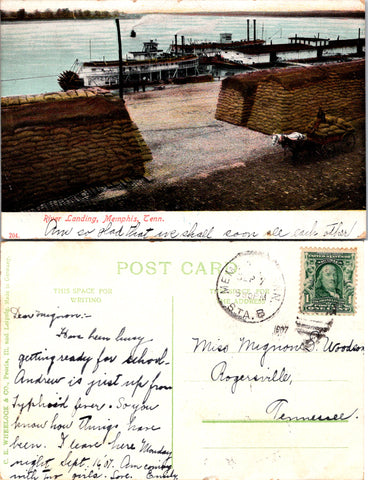 River Landing, Memphis, Tenn.
204.
Am so glad that we shall soon see each other!
POST CARD
THIS SPACE FOR
WRITING
ADDRESS
SEP 
STA. B
1907
C. E. WHEELOCK & CO., Peoria, Ill. and Leipzig. Made in Germany.
Dear Mignon:-
Have been busy
getting ready for school.
Andrew is just up from
Typhoid fever. So you
know how things have
been. I leave here Monday
night Sept. 16 '07. Am coming
with two girls. Love. Emily
Miss Mignon S. Woodson
Rogersville,
Tennessee.